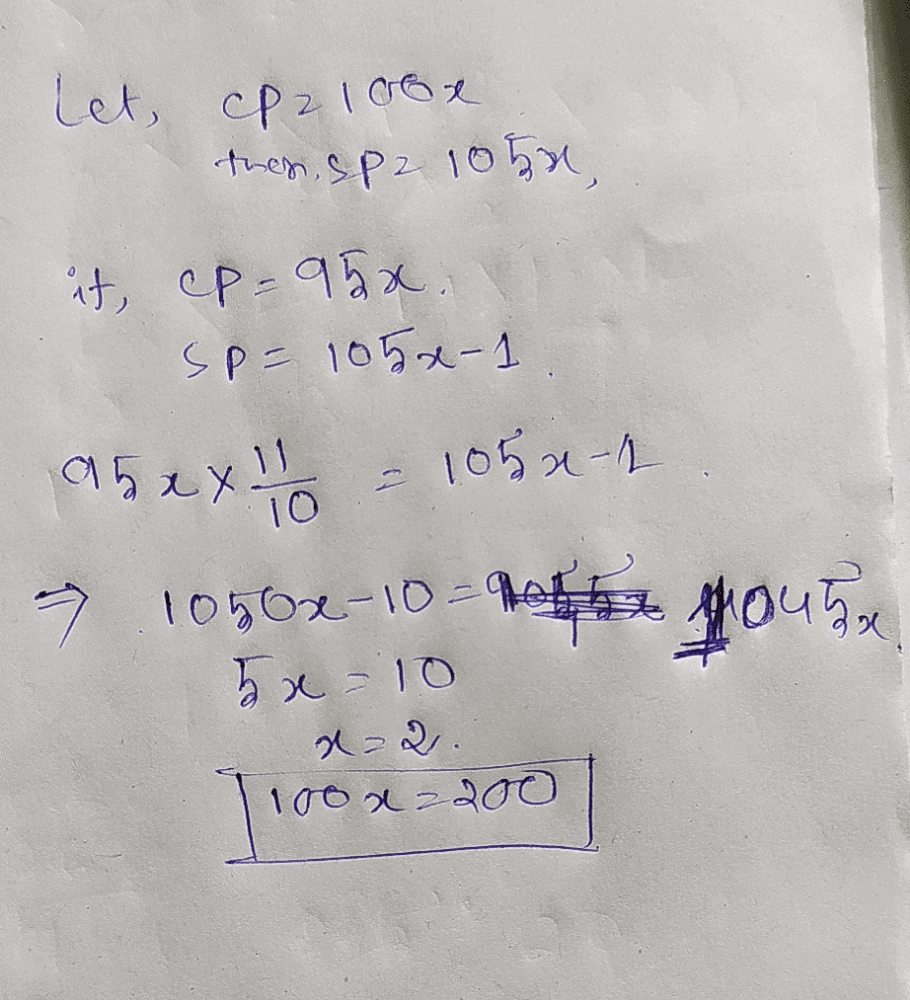 Let, CP = 100x
then, SP = 105x,
if, CP = 95x.
SP = 105x-1.
95x × 11/10 = 105x-1.
⇒ 1050x-10 = 1045x.
5x = 10
x = 2.
100x = 200